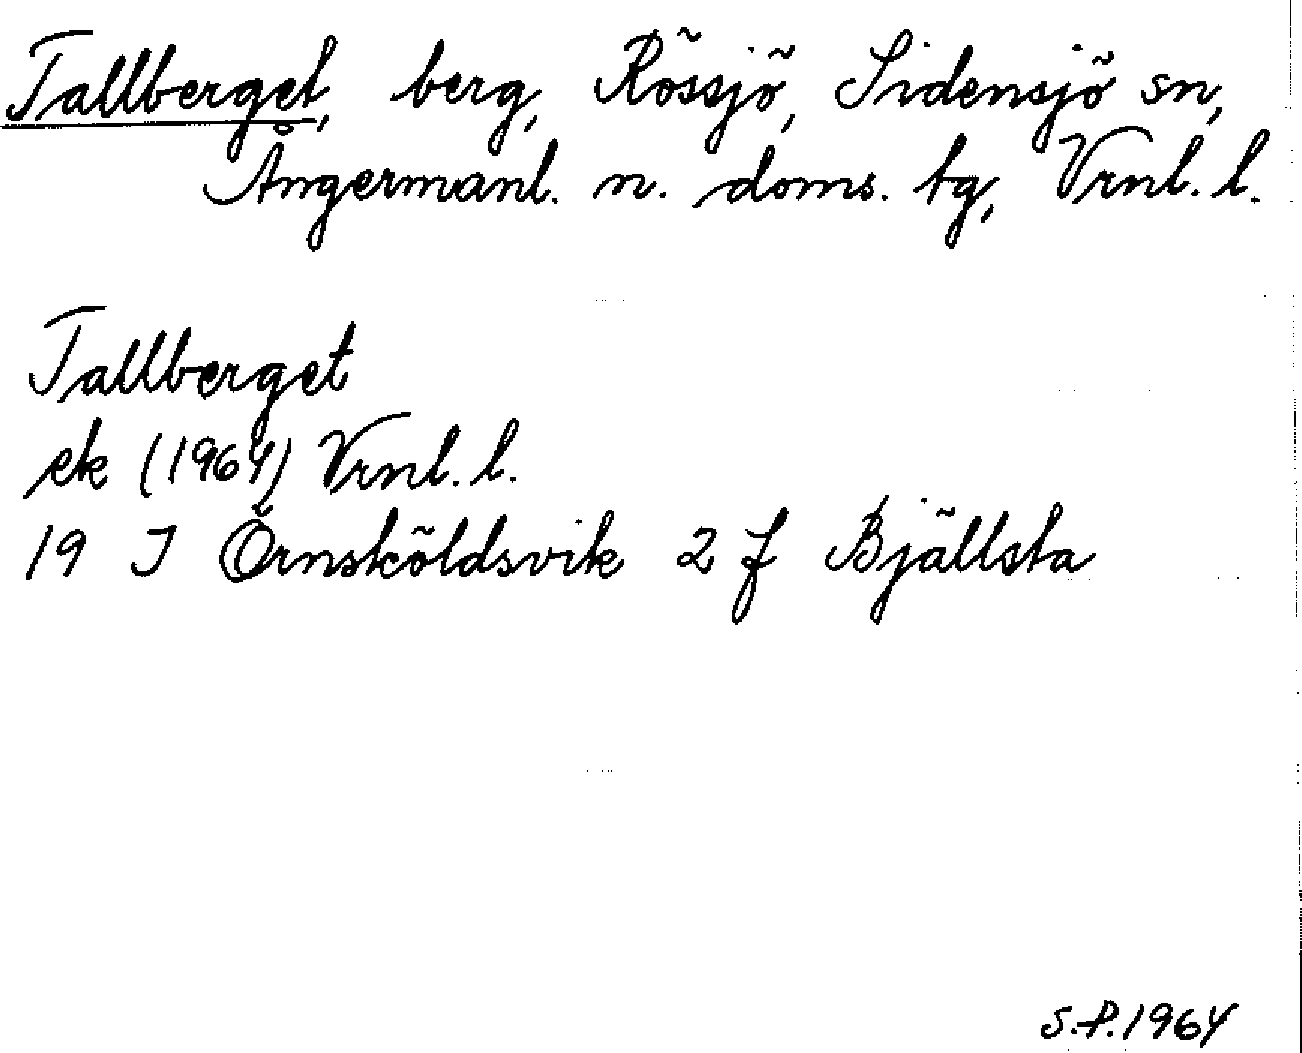 Tallberget, berg, Rössjö, Sidensjö sn,
Ångermanl. n. doms. tg, Vrnl. l.
Tallberget
ek (1964) Vrnl. l.
19 J Örnsköldsvik 2 f Bjällsta
S.P. 1964